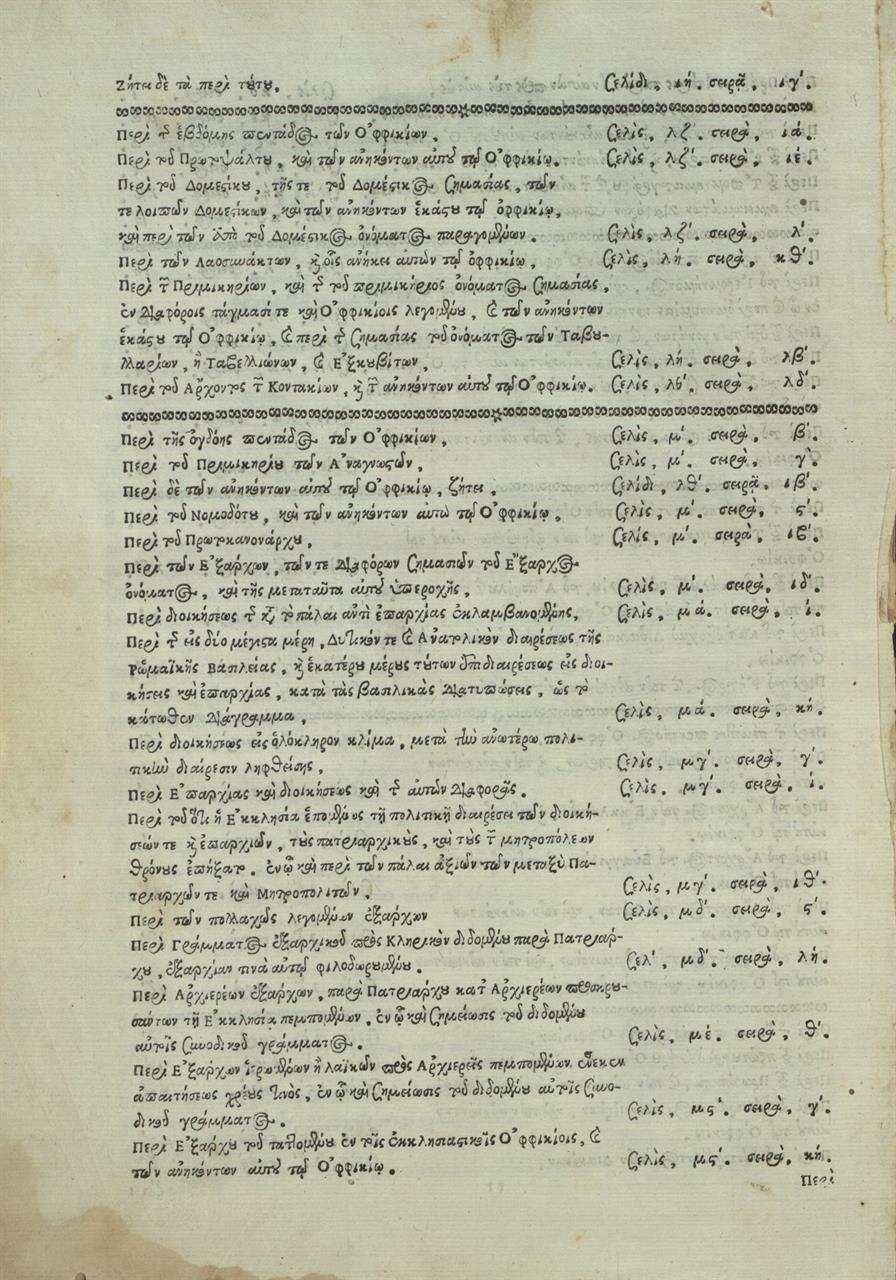 Ζήτει δὲ τὰ περὶ τούτου. Σελίδι, ιή. σειρᾷ, ιγ΄.
Περὶ τ῀ ἑβδόμης πεντάδος τῶν Ὀφφικίων. Σελὶς, λζ΄. σειρὰ, ιά.
Περὶ τοῦ Πρωτοψάλτου, καὶ τῶν ἀνηκόντων αὐτοῦ τῷ Ὀφφικίῳ. Σελὶς, λζ΄. σειρὰ, ιέ.
Περὶ τοῦ Δομεστίκου, τῆς τε τοῦ Δομέστικος σημασίας, τῶν
τε λοιπῶν Δομεστίκων, καὶ τῶν ἀνηκόντων ἑκάστου τῷ ὀφφικίῳ,
καὶ περὶ τῶν ἀπὸ τοῦ Δομέστικος ὀνόματος παραγομένων. Σελὶς, λζ΄. σειρὰ, λ΄.
Περὶ τῶν Λαοσυνάκτων, καὶ οἷς ἀνήκει αὐτῶν τῷ ὀφφικίῳ, Σελὶς, λή. σειρὰ, κθ΄.
Περὶ τῶν Πριμικηρίων, καὶ τ῀ τοῦ πριμικήριος ὀνόματος σημασίας,
ἐν διαφόροις τάγμασί τε καὶ Ὀφφικίοις λεγομένου, καὶ τῶν ἀνηκόντων
ἑκάστου τῷ Ὀφφικίῳ, καὶ περὶ τ῀ σημασίας τοῦ ὀνόματος τῶν Ταβου-
λλαρίων, ἢ Ταβελλιώνων, καὶ Ἐξκουβίτων, Σελὶς, λή. σειρὰ, λβ΄.
Περὶ τοῦ Ἄρχοντος τῶν Κοντακίων, καὶ τῶν ἀνηκόντων αὐτοῦ τῷ Ὀφφικίῳ. Σελὶς, λθ΄. σειρὰ, λδ΄.
Περὶ τῆς ὀγδόης πεντάδος τῶν Ὀφφικίων, Σελὶς, μ΄. σειρὰ, β΄.
Περὶ τοῦ Πριμικηρίου τῶν Ἀναγνωστῶν, Σελὶς, μ΄. σειρὰ, γ΄.
Περὶ δὲ τῶν ἀνηκόντων αὐτοῦ τῷ Ὀφφικίῳ, ζήτει, Σελίδι, λθ΄. σειρᾷ, ιβ΄.
Περὶ τοῦ Νομοδότου, καὶ τῶν ἀνηκόντων αὐτοῦ τῷ Ὀφφικίῳ, Σελὶς, μ΄. σειρὰ, ϛ΄.
Περὶ τοῦ Πρωτοκανονάρχου, Σελὶς, μ΄. σειρὰ, ιβ΄.
Περὶ τῶν Ἐξάρχων, τῶν τε διαφόρων σημασιῶν τοῦ Ἔξαρχος
ὀνόματος, καὶ τῆς μεταταῦτα αὐτοῦ ὑπεροχῆς, Σελὶς, μ΄. σειρὰ, ιδ΄.
Περὶ διοικήσεως τ῀ κατὰ τὸ πάλαι ἀντὶ ἐπαρχίας ἐκλαμβανομένης, Σελὶς, μά. σειρὰ, ί.
Περὶ τ῀ εἰς δύο μέγιστα μέρη, Δυτικόν τε καὶ Ἀνατολικὸν διαιρέσεως τῆς
Ῥωμαϊκῆς Βασιλείας, καὶ ἑκατέρου μέρους τούτων ἐπιδιαιρέσεως εἰς διοι-
κήσεις καὶ ἐπαρχίας, κατὰ τὰς βασιλικὰς διατυπώσεις, ὡς τὸ
κάτωθεν διάγραμμα, Σελὶς, μά. σειρὰ, κή.
Περὶ διοικήσεως εἰς ὁλόκληρον κλίμα, μετὰ τὴν ἀνωτέρω πολι-
τικὴν διαίρεσιν ληφθείσης, Σελὶς, μγ΄. σειρὰ, γ΄.
Περὶ Ἐπαρχίας καὶ διοικήσεως καὶ τ῀ αὐτῶν διαφορᾶς. Σελὶς, μγ΄. σειρὰ, ί.
Περὶ τοῦ ὅτι ἡ Ἐκκλησία ἑπομένως τῇ πολιτικῇ διαιρέσει τῶν διοική-
σεών τε καὶ ἐπαρχιῶν, τοὺς πατριαρχικοὺς, καὶ τοὺς τῶν μητροπόλεων
θρόνους ἐπήξατο. ἐν ᾧ καὶ περὶ τῶν πάλαι ἀξιῶν τῶν μεταξὺ Πα-
τριαρχῶν τε καὶ Μητροπολιτῶν, Σελὶς, μγ΄. σειρὰ, ιθ΄.
Περὶ τῶν πολλαχῶς λεγομένων ἐξάρχων Σελὶς, μδ΄. σειρὰ, ϛ΄.
Περὶ Γράμματος ἐξαρχικοῦ πρὸς Κληρικὸν διδομένου παρὰ Πατριάρ-
χου, ἐξαρχίαν τινὰ αὐτῷ φιλοδωρουμένου. Σελ΄, μδ΄. σειρὰ, λή.
Περὶ Ἀρχιερέων ἐξάρχων, παρὰ Πατριάρχου κατ' Ἀρχιερέων προσκρου-
σάντων τῇ Ἐκκλησίᾳ πεμπομένων, ἐν ᾧ καὶ σημείωσις τοῦ διδομένου
αὐτοῖς Συνοδικοῦ γράμματος. Σελὶς, μέ. σειρὰ, θ΄.
Περὶ Ἐξάρχων ἱερωμένων ἢ λαϊκῶν πρὸς Ἀρχιερεῖς πεμπομένων, ἕνεκεν
ἀπαιτήσεως χρέους τινὸς, ἐν ᾧ καὶ σημείωσις τοῦ διδομένου αὐτοῖς Συνο-
δικοῦ γράμματος. Σελὶς, μϛ΄. σειρὰ, γ΄.
Περὶ Ἐξάρχου τοῦ ταττομένου ἐν τοῖς ἐκκλησιαστικοῖς Ὀφφικίοις, καὶ
τῶν ἀνηκόντων αὐτοῦ τῷ Ὀφφικίῳ. Σελὶς, μϛ΄. σειρὰ, κή.
Περὶ